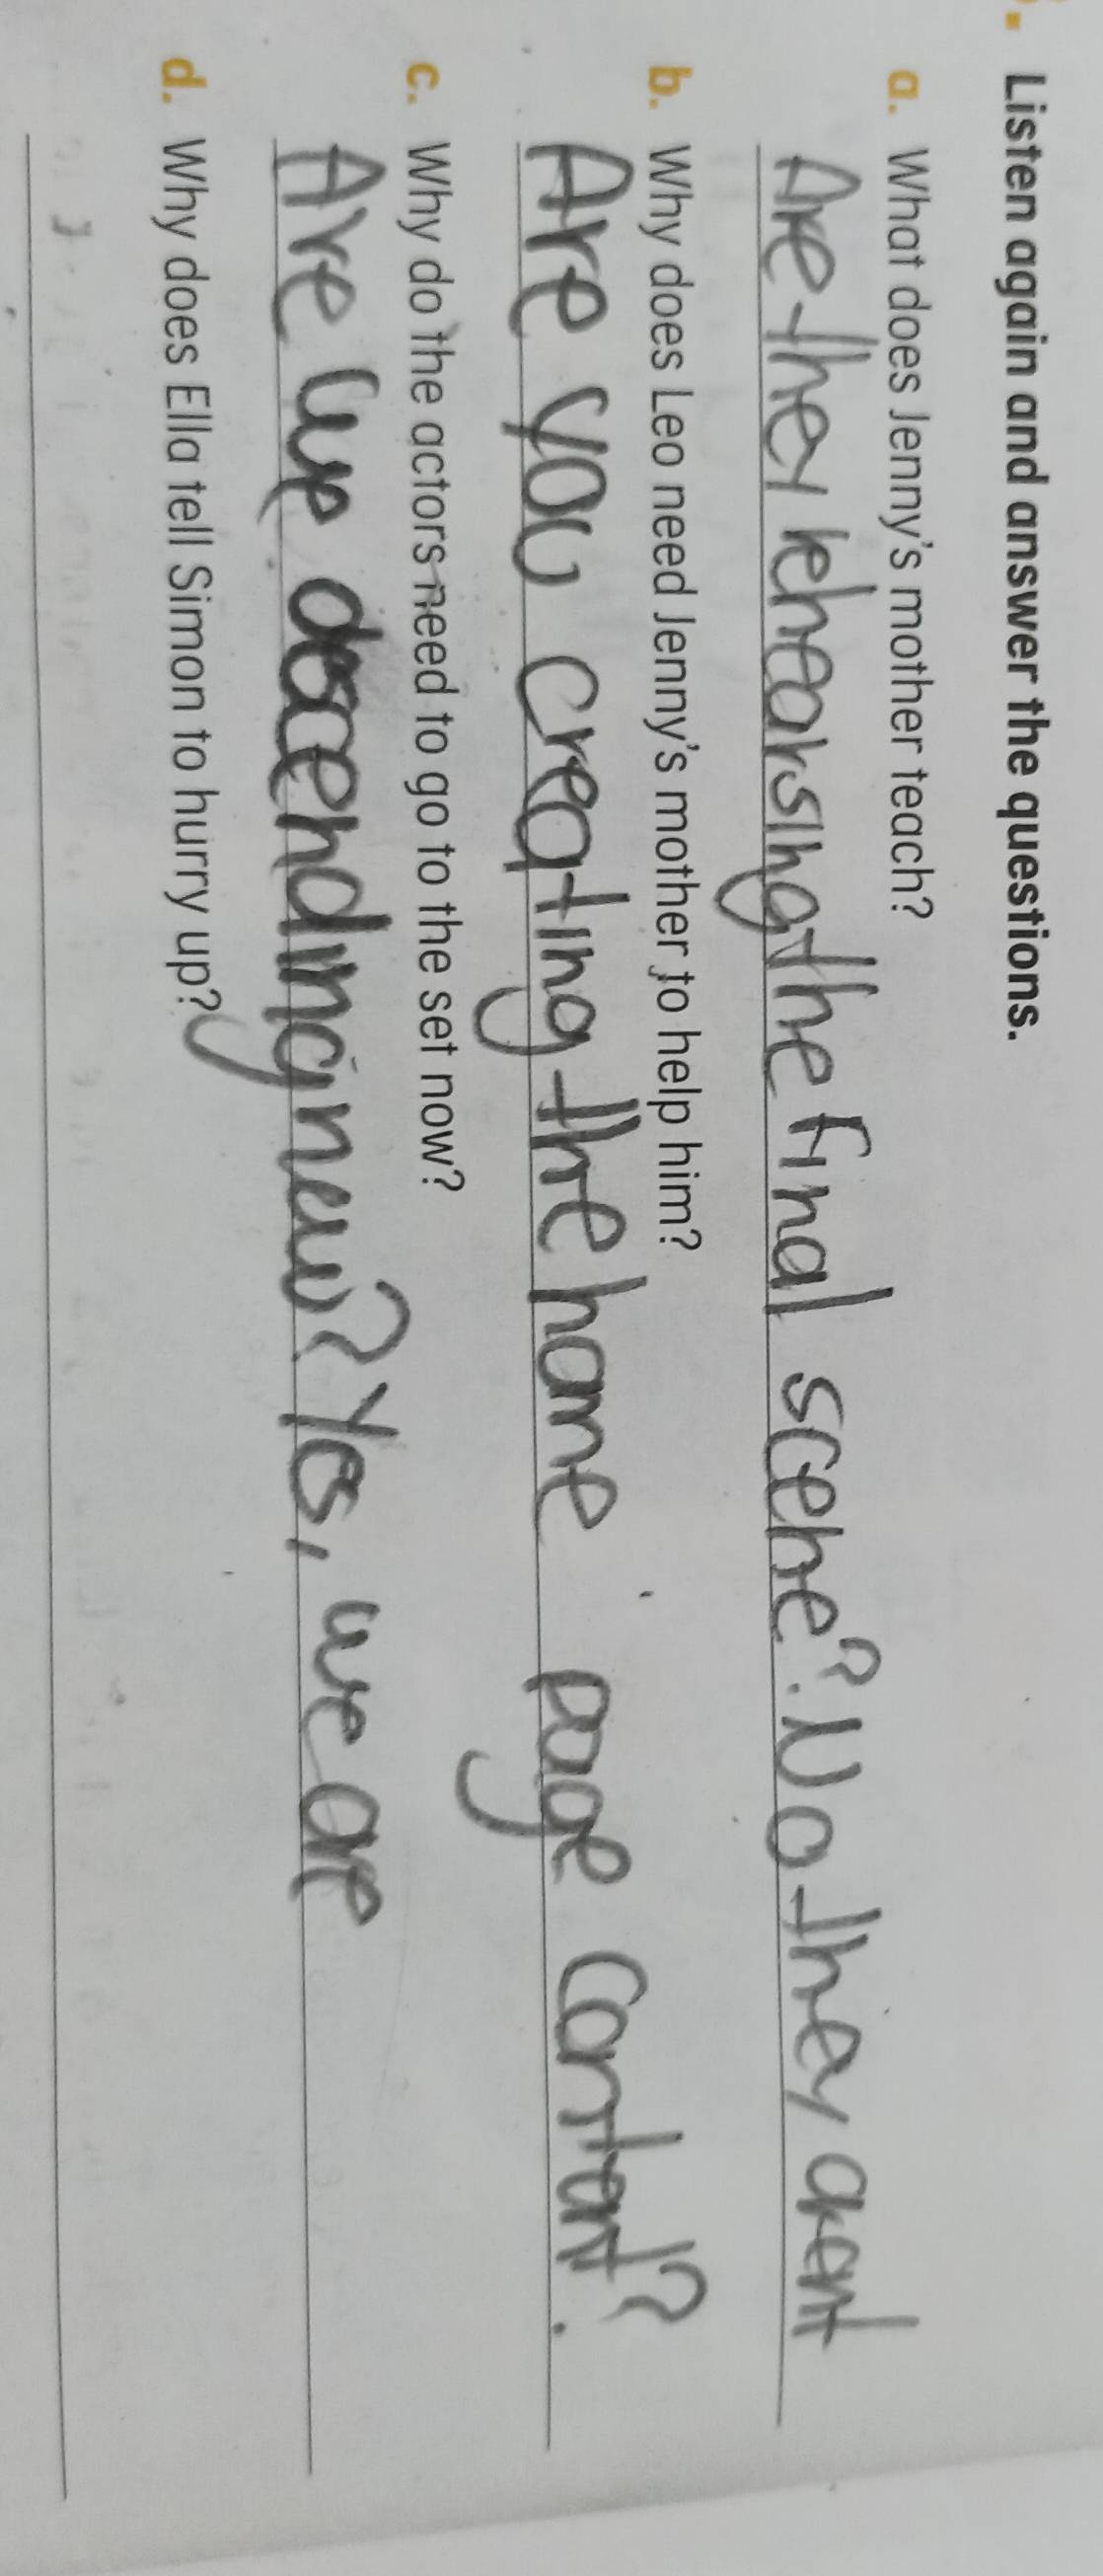 Listen again and answer the questions.
a. What does Jenny's mother teach?
Are they rehearsing the final scene? No they arent
b. Why does Leo need Jenny's mother to help him?
Are you creating the home page content?
c. Why do the actors need to go to the set now?
Are we descending new? Yes, we are
d. Why does Ella tell Simon to hurry up?